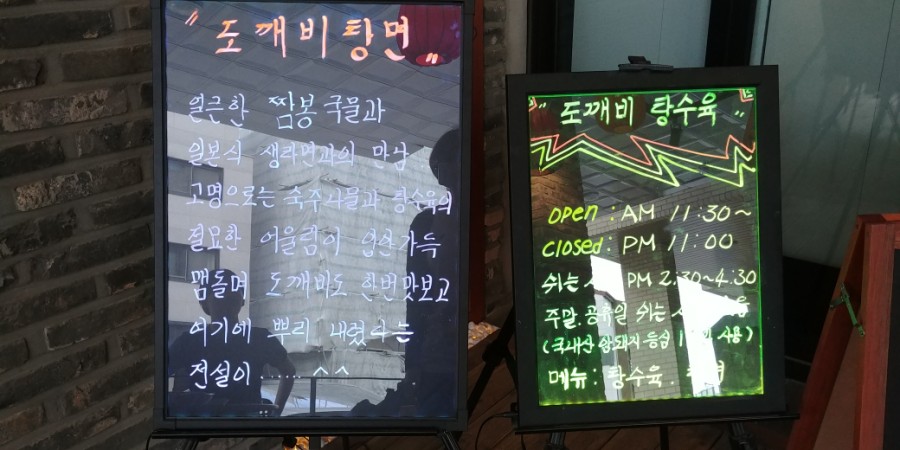 "도깨비탕면"
얼큰한 짬뽕국물과
일본식 생라면과의 만남
고명으로는 숙주나물과 탕수육의
절묘한 어울림이 입안가득
맴돌며 도깨비도 한번맛보고
여기에 뿌리 내렸다는
전설이......^^
"도깨비 탕수육"
open : AM 11:30~
closed : PM 11:00
쉬는 PM 2:30~4:30
주말.공휴일 쉬는
(국내산 암돼지 등심 사용)
메뉴 : 탕수육.